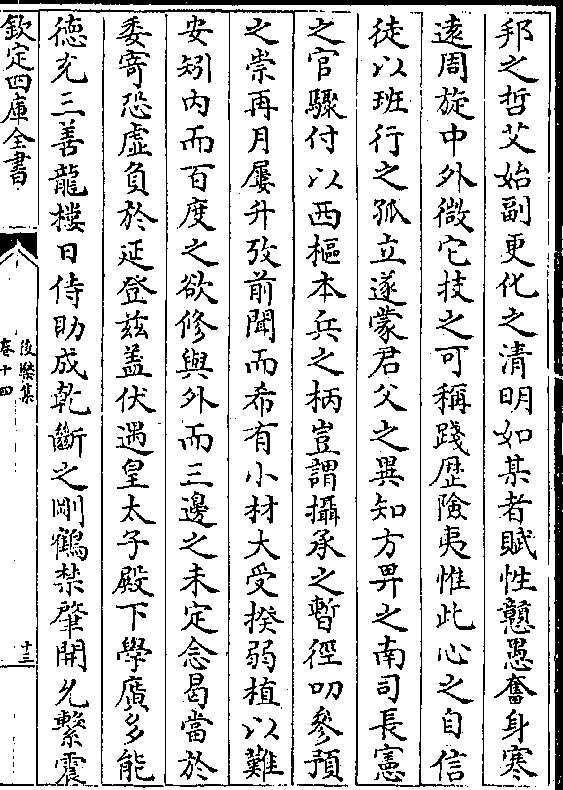 邦之哲艾始副更化之清明如某者賦性戅愚奮身寒
逺周旋中外㣲它技之可稱踐歴險夷惟此心之自信
徒以班行之孤立遂蒙君父之異知方畀之南司長憲
之官驟付以西樞本兵之柄豈謂攝承之暫徑叨參預
之崇再月屢升攷前聞而希有小材大受揆弱植以難
安矧内而百度之欲修與外而三邊之未定念曷當於
委寄恐虛負於延登兹盖伏遇皇太子殿下學廣多能
德充三善龍樓日侍助成乾斷之剛鶴禁肇開允繫震
欽定四庫全書
後樂集
卷十四
十三